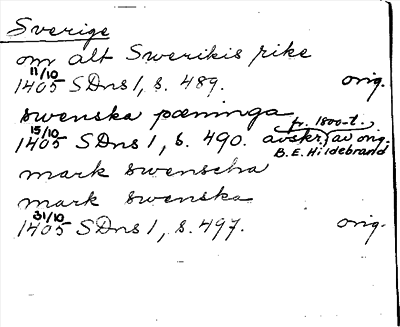 Sverige
om alt Swerikis rike
11/10
1405 SDns 1, s. 489. orig.
swenska pæninga
fr. 1800-t.
15/10
1405 SDns 1, s. 490. avskr. av orig.
B.E. Hildebrand
mark swenscha
mark swenska
31/10
1405 SDns 1, s. 497. orig.